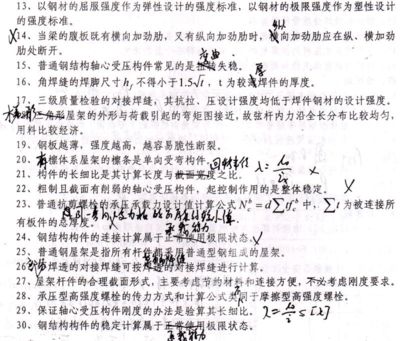 13. 以钢材的屈服强度作为弹性设计的强度标准,以钢材的极限强度作为塑性设计
的强度标准。
纵
14. 当梁的腹板既有横向加劲肋,又有纵向加劲肋时,横向加劲肋应在纵、横加劲
肋处断开。
弯曲
15. 普通钢结构轴心受压构件常见的是扭转失稳。
厚
16. 角焊缝的焊脚尺寸 h_f 不得小于1.5√t,t 为较薄焊件的厚度。
17. 三级质量检验的对接焊缝,其抗拉、压设计强度均低于焊件钢材的设计强度。
梯形
18. 三角形屋架的外形与荷载引起的弯矩图接近,故弦杆内力沿全长分布比较均匀,
用料比较经济。
19. 钢板越薄,强度越高,越容易脆性断裂。
20. 有檩体系屋架的檩条是单向受弯构件。
回转半径
λ=l₀/i
21. 构件的长细比是其计算长度与截面宽度之比。
22. 粗制且截面有削弱的轴心受压构件,起控制作用的是整体稳定。
X
23. 普通抗剪螺栓的承压承载力设计值计算公式 N_c^b = d∑tf_c^b 中,∑t 为被连接所
有板件的总厚度。
承载能力
24. 钢结构构件的连接计算属于正常使用极限状态。
25. 普通钢屋架是指所有杆件都采用普通型钢组成的屋架。
26. 的对接焊缝可按焊透的对接焊缝进行计算。
27. 屋架杆件的合理截面形式,主要考虑节约材料和连接方便,不必考虑刚度要求。
不
28. 承压型高强度螺栓的传力方式和计算公式类同于摩擦型高强度螺栓。
29. 保证轴心受压构件刚度的办法是验算其长细比。
λ=l₀/i≤[λ]
30. 钢结构构件的稳定计算属于正常使用极限状态。
承载能力